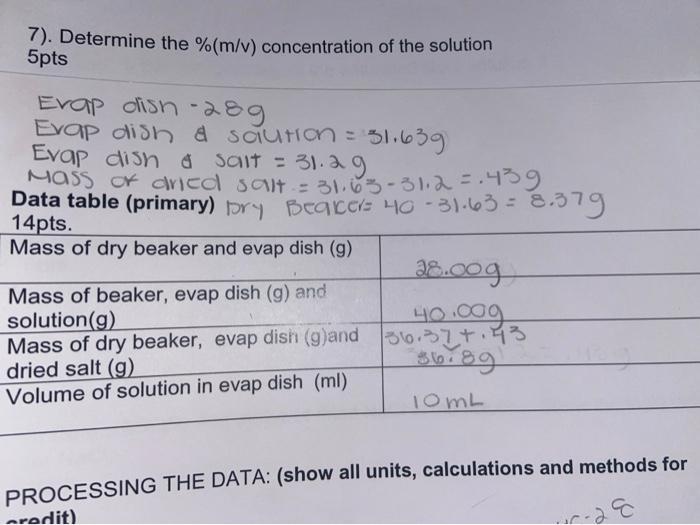 7). Determine the %(m/v) concentration of the solution
5pts
Evap dish - 28g
Evap dish & solution = 31.63g
Evap dish & salt = 31.2g
Mass of dried salt = 31.63-31.2 = .43g
Data table (primary) Dry Beaker = 40-31.63 = 8.37g
14pts.
Mass of dry beaker and evap dish (g)
28.00g
Mass of beaker, evap dish (g) and
solution(g)
40.00g
Mass of dry beaker, evap dish (g)and
dried salt (g)
36.37+.43
36.8g
Volume of solution in evap dish (ml)
10mL
PROCESSING THE DATA: (show all units, calculations and methods for
credit)